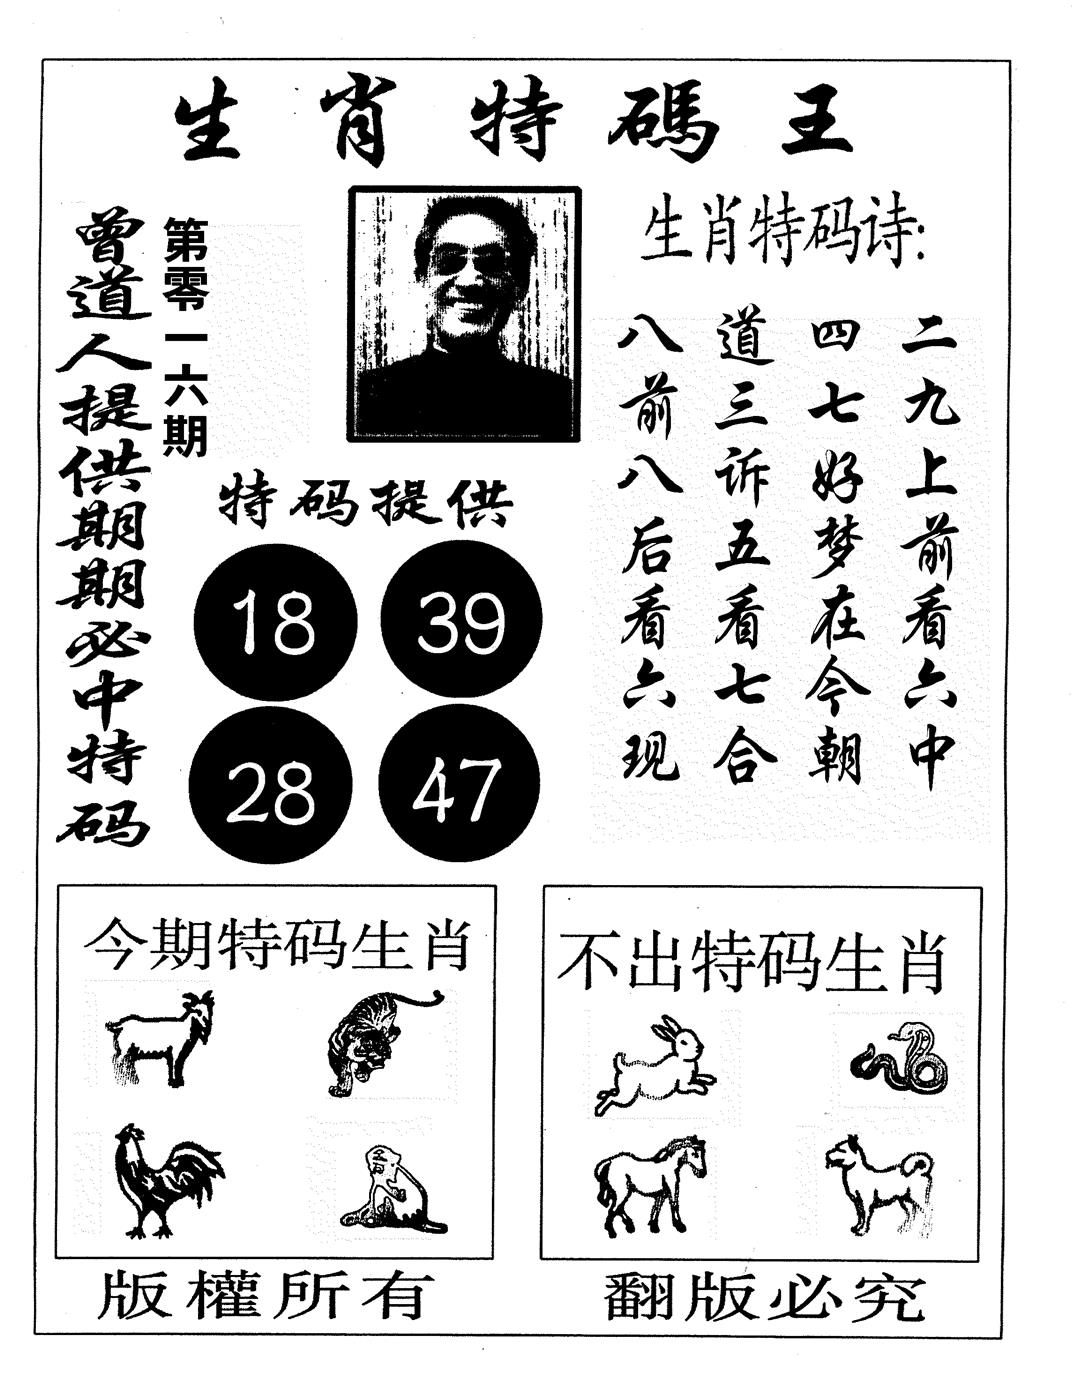 生肖特碼王
曾道人提供期期必中特码
第零一六期
生肖特码诗:
二九上前看六中
四七好梦在今朝
道三诉五看七合
八前八后看六现
特码提供
18 39
28 47
今期特码生肖
不出特码生肖
版權所有
翻版必究